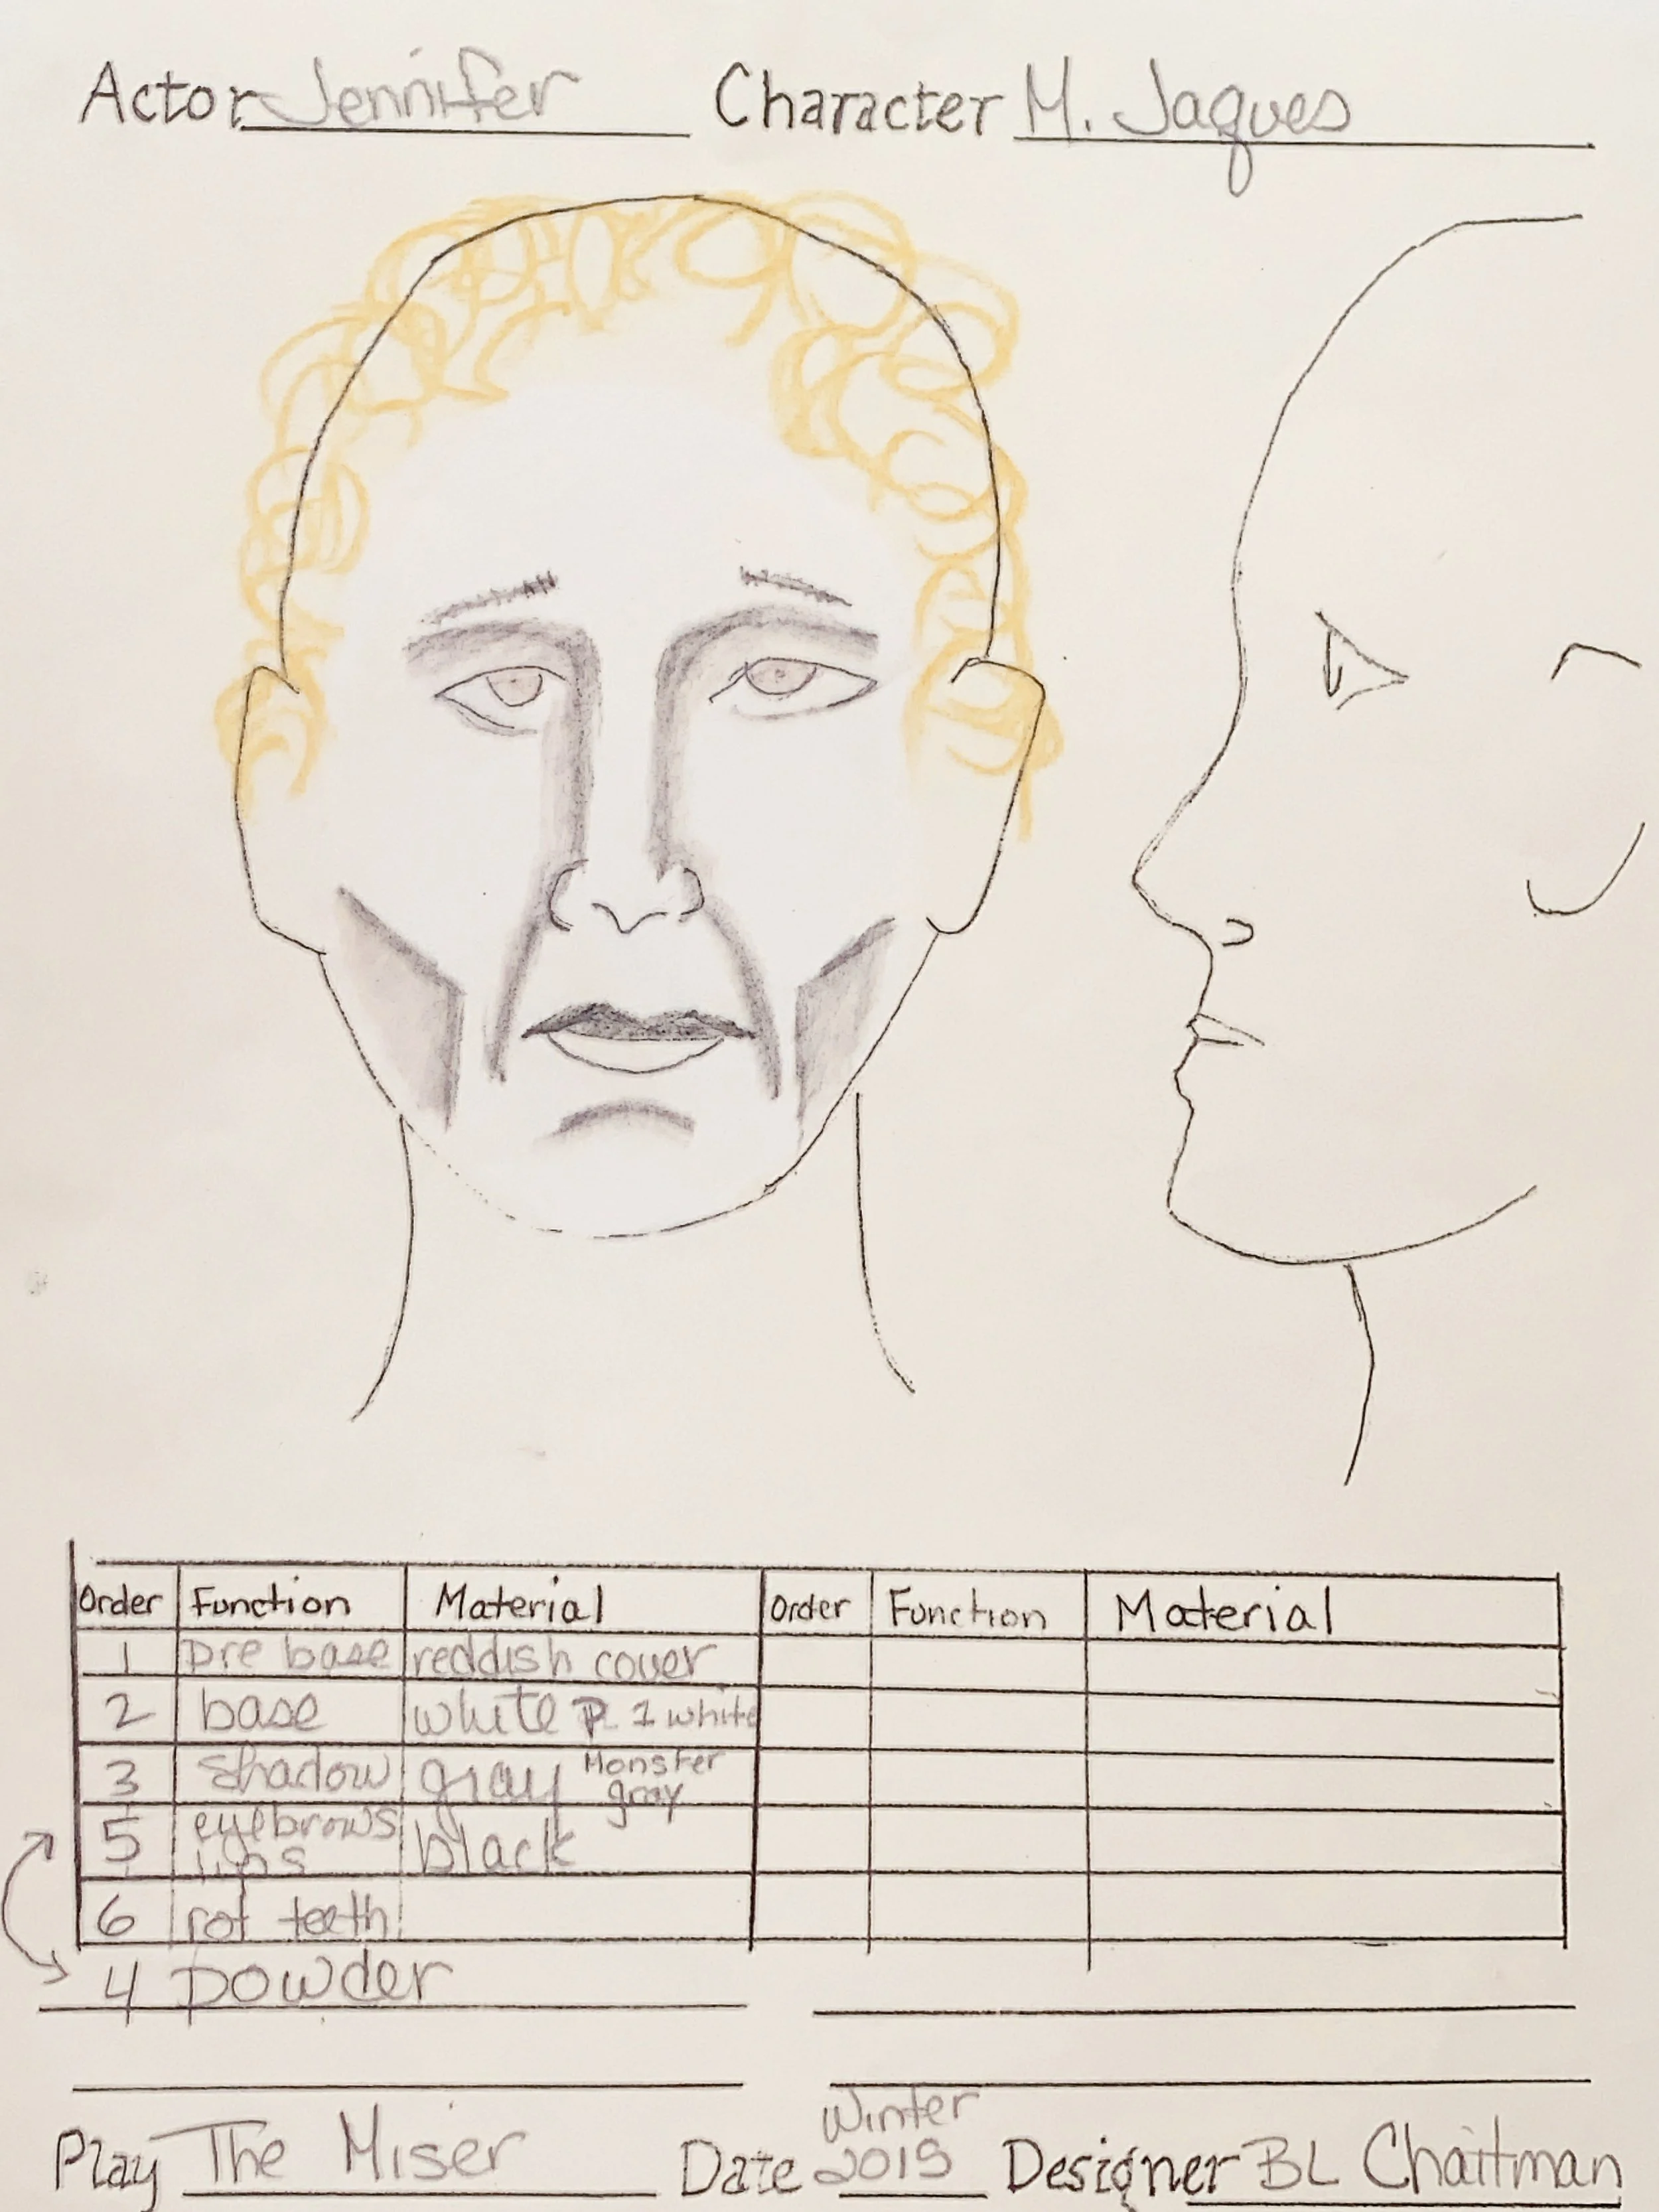 Actor Jennifer Character M. Jaques
Order Function Material Order Function Material
1 pre base reddish cover
2 base white P. 1 white
3 shadow gray Monster gray
5 eyebrows lips black
6 rot teeth
4 powder
Play The Miser Date Winter 2019 Designer BL Chaitman